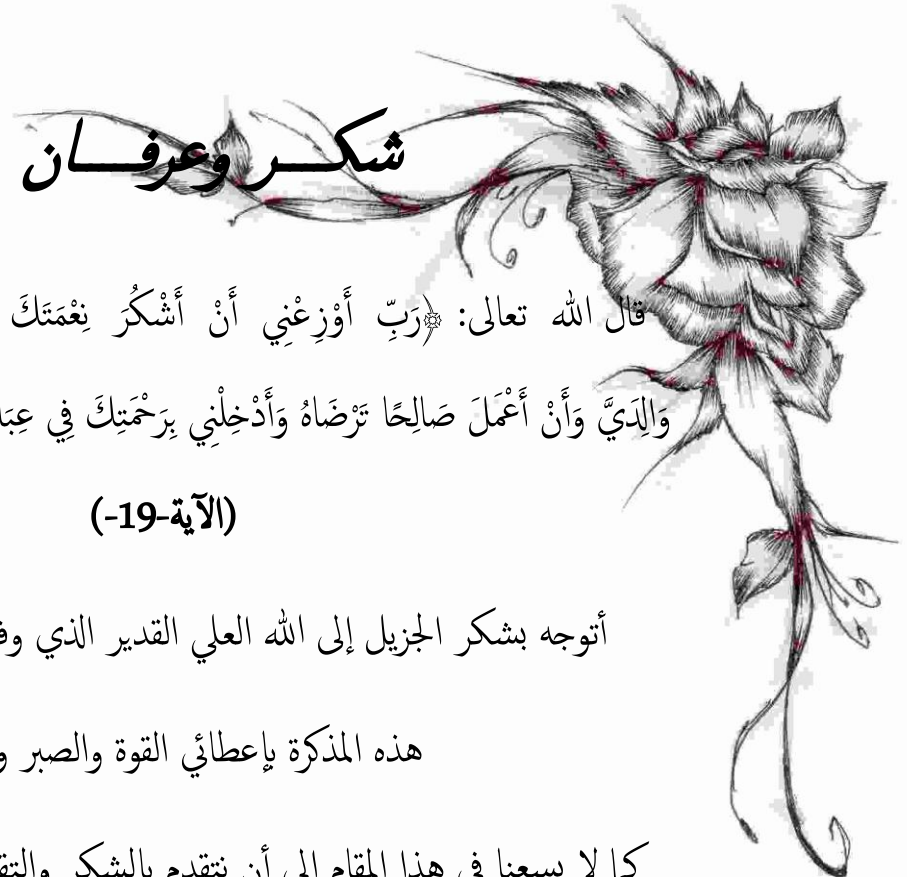 شكـــر وعرفـــان
قال الله تعالى: ﴿رَبِّ أَوْزِعْنِي أَنْ أَشْكُرَ نِعْمَتَكَ
وَالِدَيَّ وَأَنْ أَعْمَلَ صَالِحًا تَرْضَاهُ وَأَدْخِلْنِي بِرَحْمَتِكَ فِي
(الآية-19-)
أتوجه بشكر الجزيل إلى الله العلي القدير الذي
هذه المذكرة بإعطائي القوة والصبر
كما لا يسعنا في هذا المقام إلى أن نتقدم بالشكر